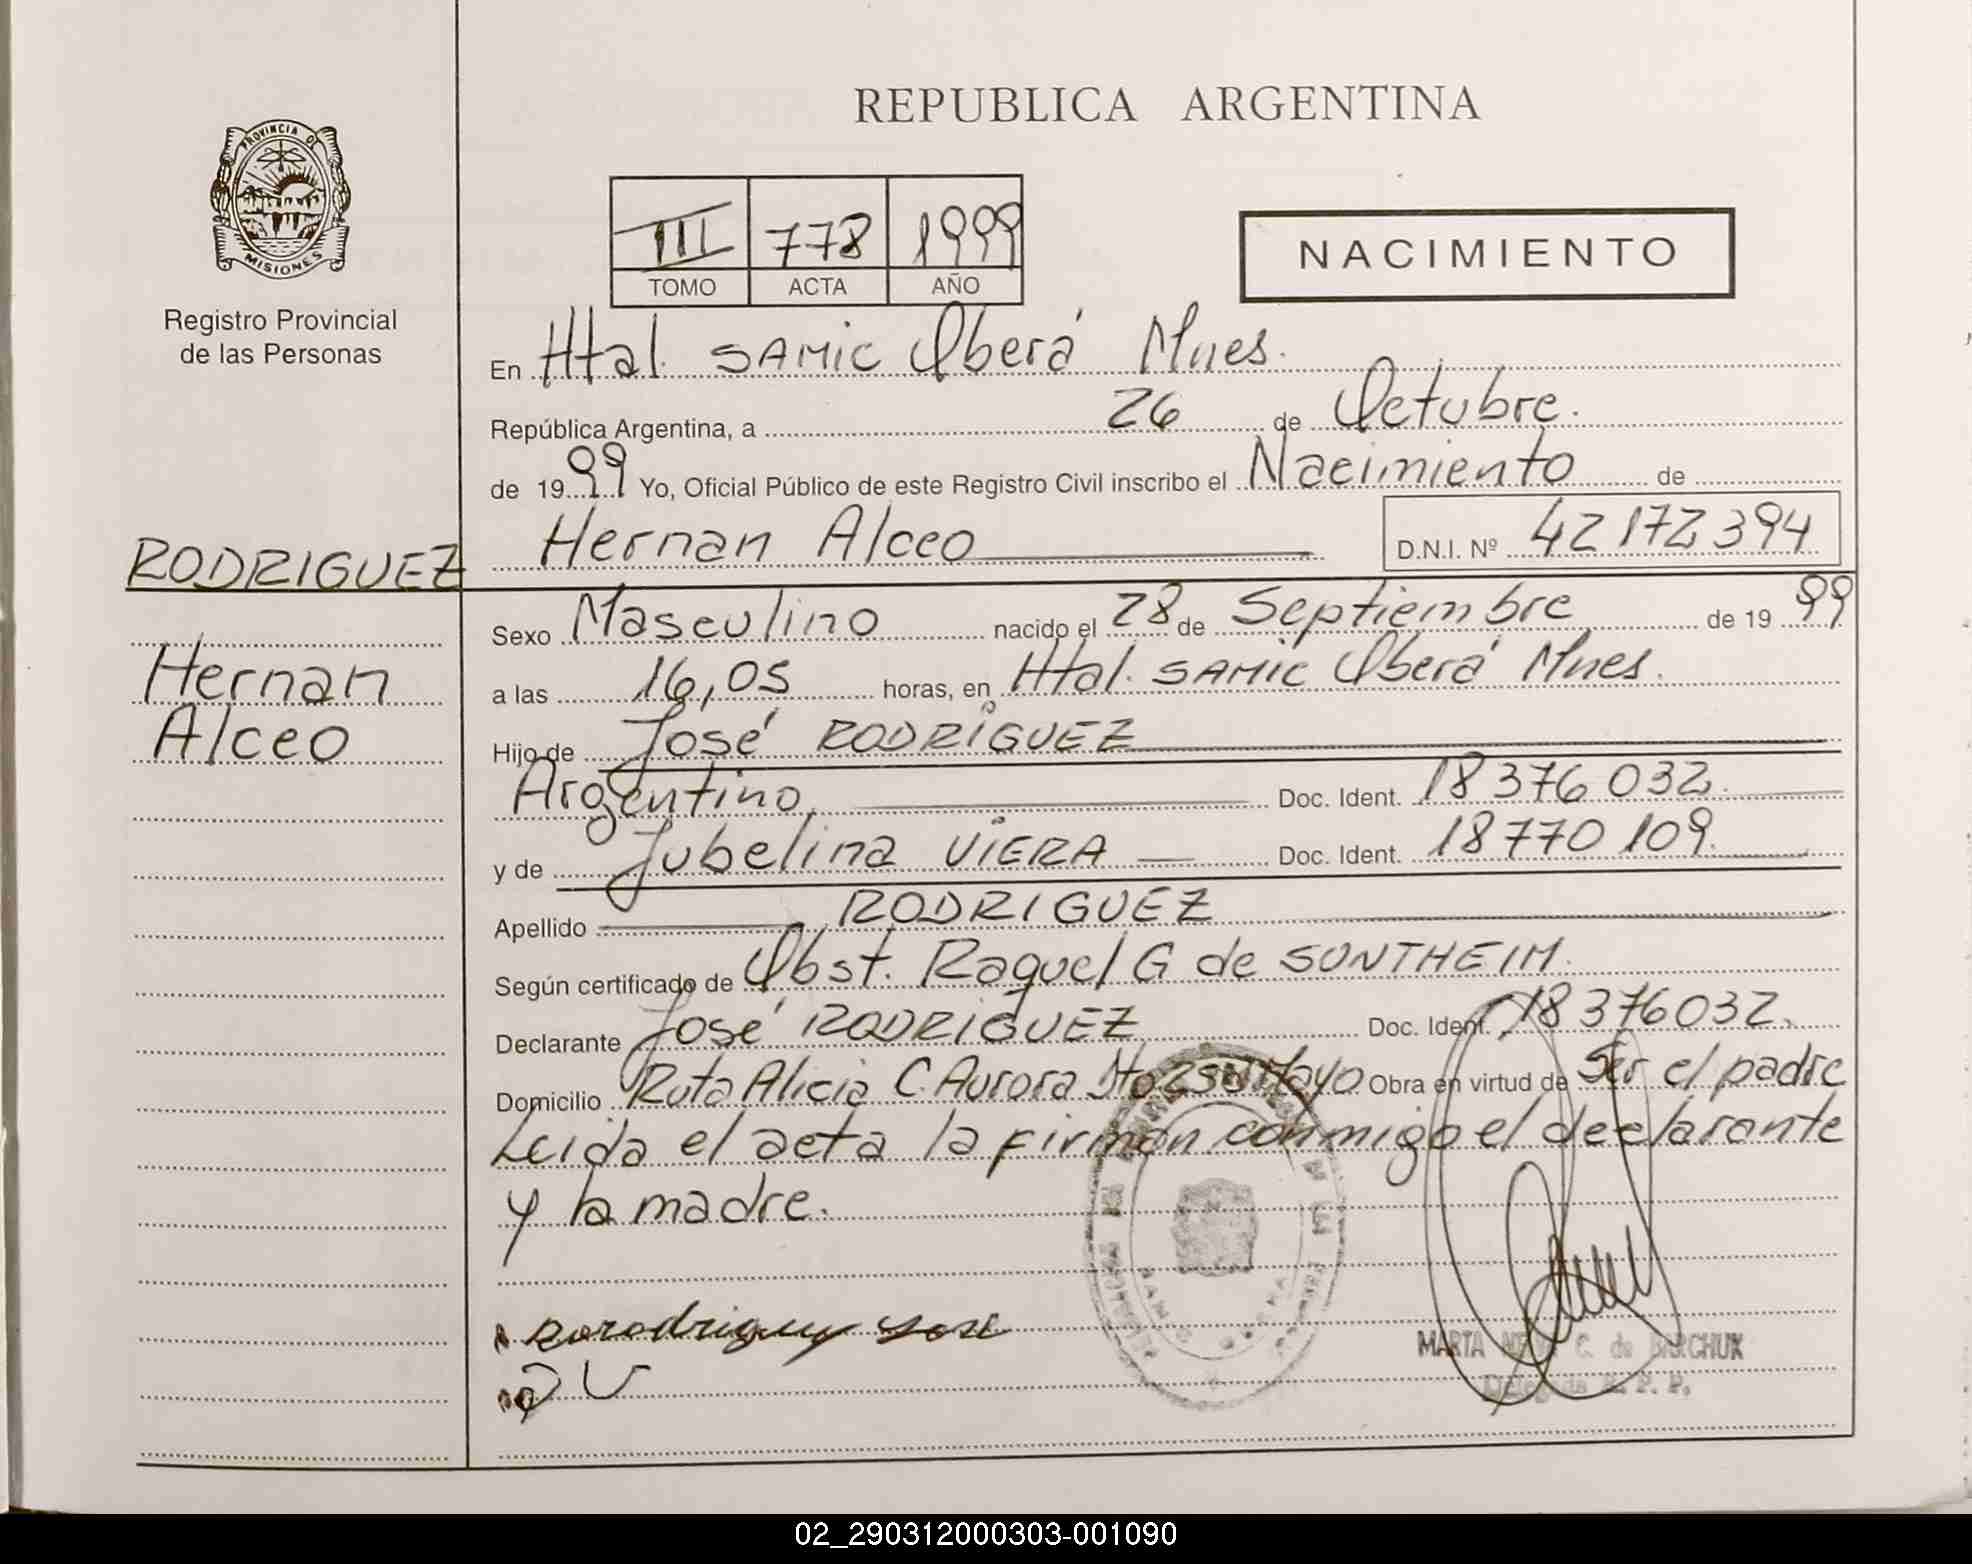 REPUBLICA ARGENTINA
PROVINCIA DE
MISIONES
Registro Provincial
de las Personas
III 778 1999
TOMO ACTA AÑO
NACIMIENTO
En Htal. SAMIC Oberá Mnes.
República Argentina, a 26 de Octubre.
de 1999 Yo, Oficial Público de este Registro Civil inscribo el Nacimiento de
Hernan Alceo D.N.I. Nº 42172394
RODRIGUEZ
Hernan
Alceo
Sexo Masculino nacido el 28 de Septiembre de 1999
a las 16,05 horas, en Htal. SAMIC Oberá Mnes.
Hijo de José RODRIGUEZ
Argentino Doc. Ident. 18376032
y de Jubelina VIERA Doc. Ident. 18770109.
Apellido RODRIGUEZ
Según certificado de Obst. Raquel G de SONTHEIM.
Declarante José RODRIGUEZ Doc. Ident. 18376032.
Domicilio Ruta Alicia C. Aurora Mayo Obra en virtud de Ser el padre
Leida el acta la firman conmigo el declarante
y la madre.
MARTA C. de
R. P. P.
02_290312000303-001090